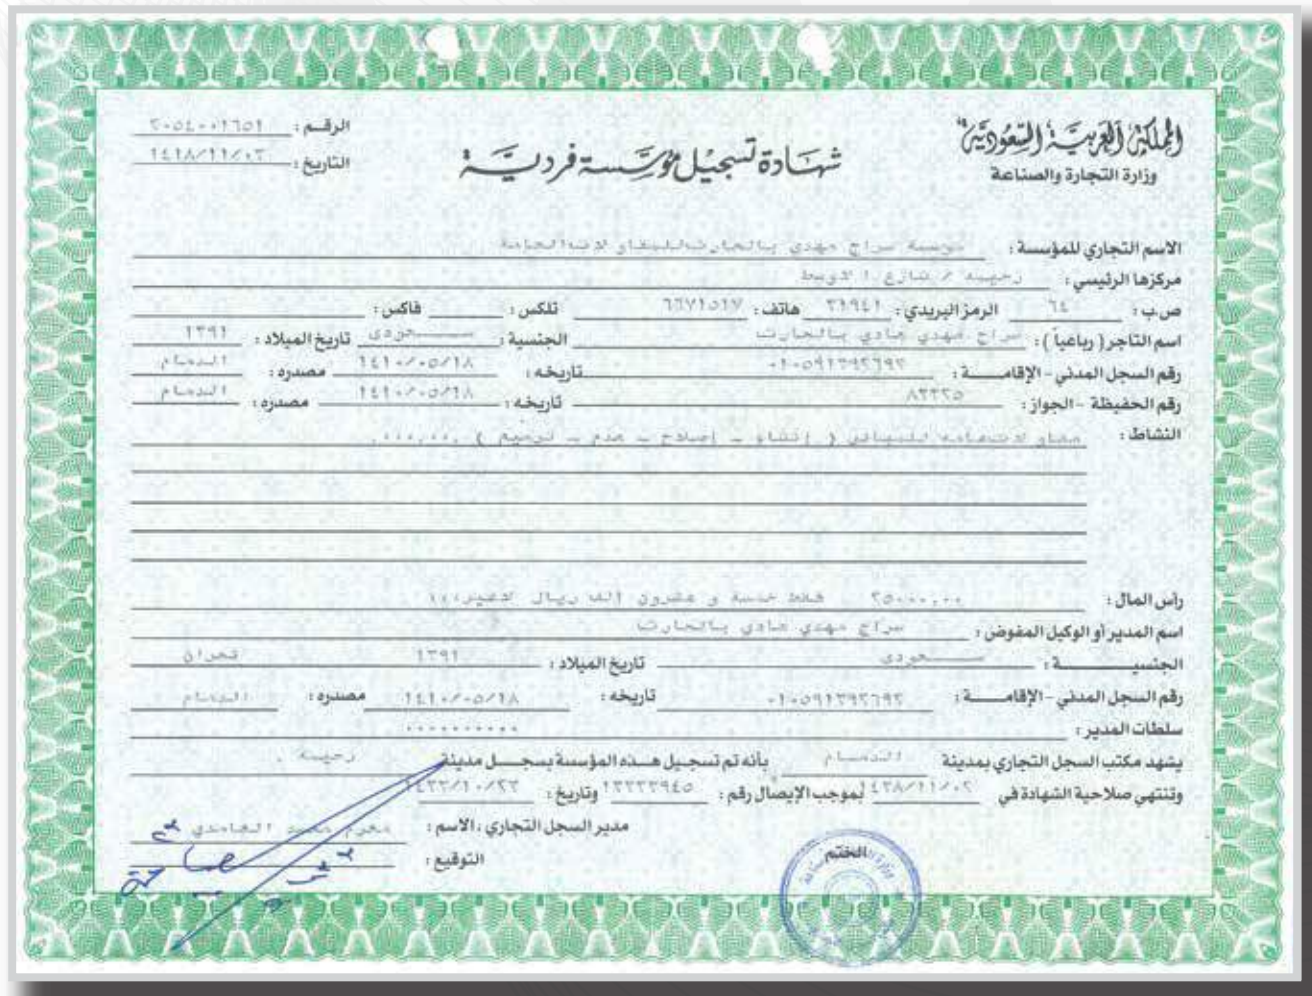 المملكة العربية السعودية
وزارة التجارة والصناعة
شهادة تسجيل مؤسسة فردية
الرقم : ٢٠٥٤٠٠١٦٥١
التاريخ : ١٤١٨/١١/٠٢
الاسم التجاري للمؤسسة : موسسة سراج مهدي بالحارث للمقاولات العامة
مركزها الرئيسي : رحيمه / شارع ا لاوسط
ص.ب : ٦٤ الرمز البريدي : ٣١٩٤١ هاتف : ٦٦٧١٥١٧ تلكس : فاكس :
اسم التاجر ( رباعياً ) : سراج مهدي هادي بالحارث الجنسية : سعودى تاريخ الميلاد : ١٣٩١
رقم السجل المدني - الإقامة : تاريخه : ١٤١٠/٠٥/١٨ مصدره : الدمام
رقم الحفيظة - الجواز : ٨٣٣٢٥ تاريخه : ١٤١٠/٠٥/١٨ مصدره : الدمام
النشاط : مقاولات عامه للمباني ( إنشاء - إصلاح - هدم - ترميم )
رأس المال : ٢٥٠٠٠,٠٠ فقط خمسة و عشرون الف ريال لاغير
اسم المدير أو الوكيل المفوض : سراج مهدي هادي بالحارث
الجنسية : سعودى تاريخ الميلاد : ١٣٩١ نجران
رقم السجل المدني - الإقامة : تاريخه : ١٤١٠/٠٥/١٨ مصدره : الدمام
سلطات المدير : ٠٠٠٠٠٠٠٠٠٠
يشهد مكتب السجل التجاري بمدينة الدمام بأنه تم تسجيل هذه المؤسسة بسجل مدينة رحيمه .
وتنتهي صلاحية الشهادة في ١٤٣٨/١١/٠٢ بموجب الإيصال رقم : وتاريخ : ١٤٣٣/١٠/٢٣
مدير السجل التجاري ، الاسم : محمد الغامدي
التوقيع :
الختم